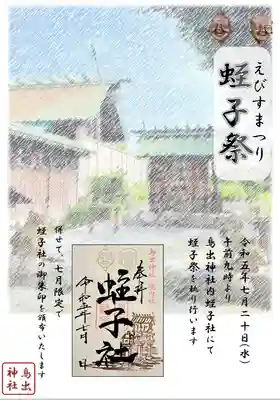 えびすまつり
蛭子祭
令和五年七月二十日(水)
午前九時より
鳥出神社内蛭子社にて
蛭子祭を執り行います
併せて、七月限定で
蛭子社の御朱印を頒布いたします
奉拝
蛭子社
令和五年七月 日
鳥出
神社